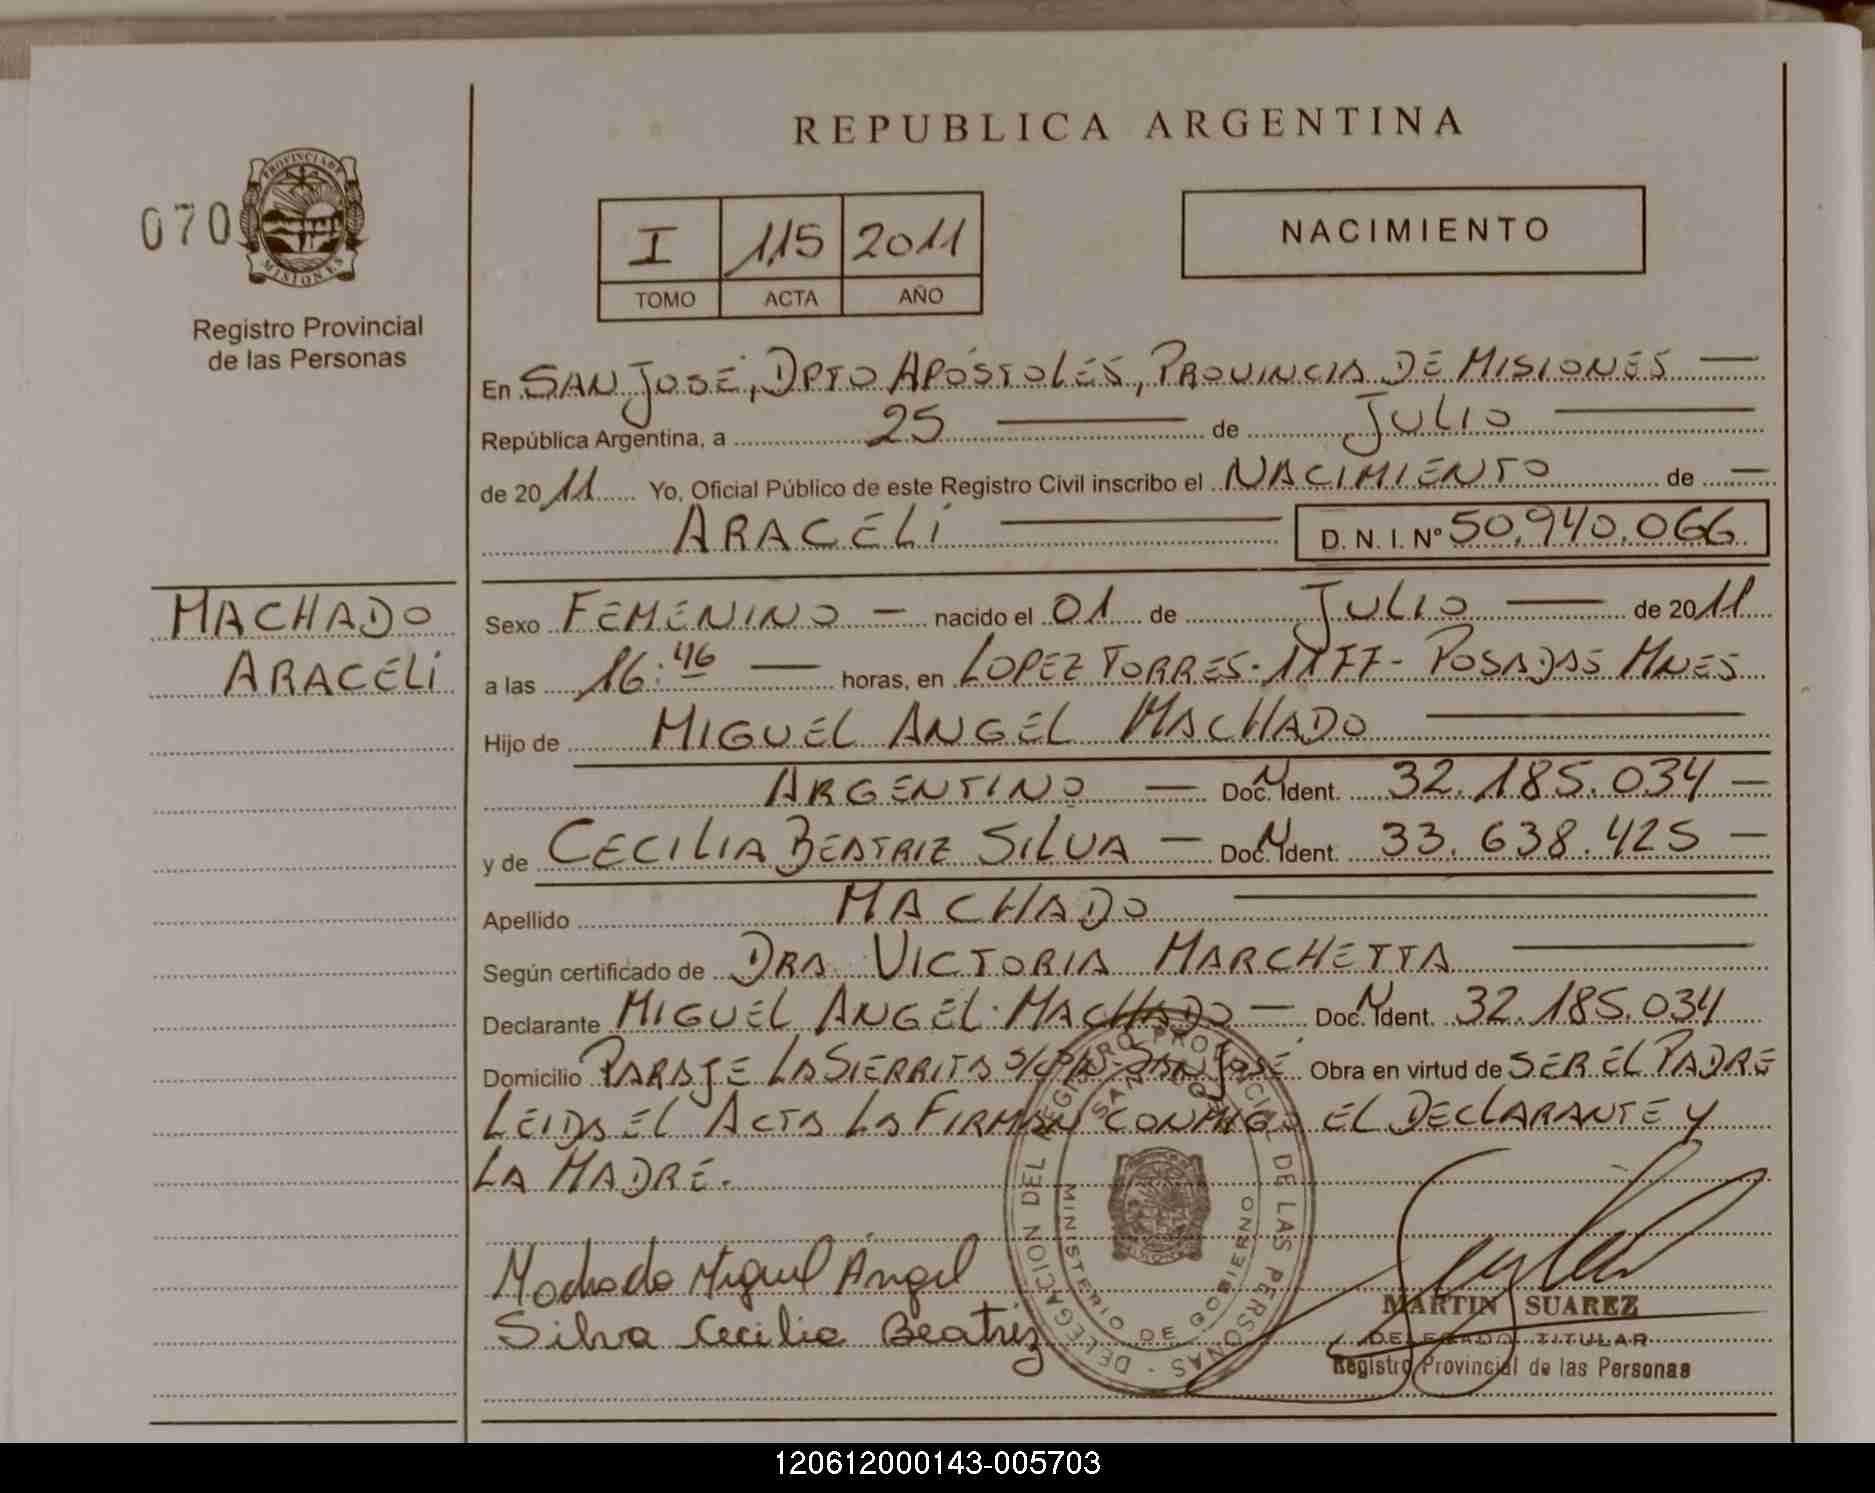 REPUBLICA ARGENTINA
070
PROVINCIA DE MISIONES
Registro Provincial
de las Personas
I 115 2011
TOMO ACTA AÑO
NACIMIENTO
En SAN JOSÉ, DPTO APÓSTOLES, PROVINCIA DE MISIONES —
República Argentina, a 25 — de JULIO —
de 2011 Yo, Oficial Público de este Registro Civil inscribo el NACIMIENTO de —
ARACELI — D. N. I. Nº 50.940.066
MACHADO
ARACELI
Sexo FEMENINO — nacido el 01 de JULIO — de 2011
a las 16:46 — horas, en LOPEZ TORRES - 1177 - POSADAS MNES
Hijo de MIGUEL ANGEL MACHADO —
ARGENTINO — Doc. N Ident. 32.185.034 —
y de CECILIA BEATRIZ SILVA — Doc. N Ident. 33.638.425 —
Apellido MACHADO —
Según certificado de DRA VICTORIA MARCHETTA —
Declarante MIGUEL ANGEL MACHADO — Doc. N Ident. 32.185.034
Domicilio PARAJE LA SIERRITA SAN JOSÉ Obra en virtud de SER EL PADRE
LEIDA EL ACTA LA FIRMAN CONMIGO EL DECLARANTE Y
LA MADRE.
DELEGACION DEL REGISTRO PROVINCIAL DE LAS PERSONAS -
MINISTERIO DE GOBIERNO
Machado Miguel Ángel
Silva Cecilia Beatriz
MARTIN SUAREZ
DELEGADO TITULAR
Registro Provincial de las Personas
120612000143-005703